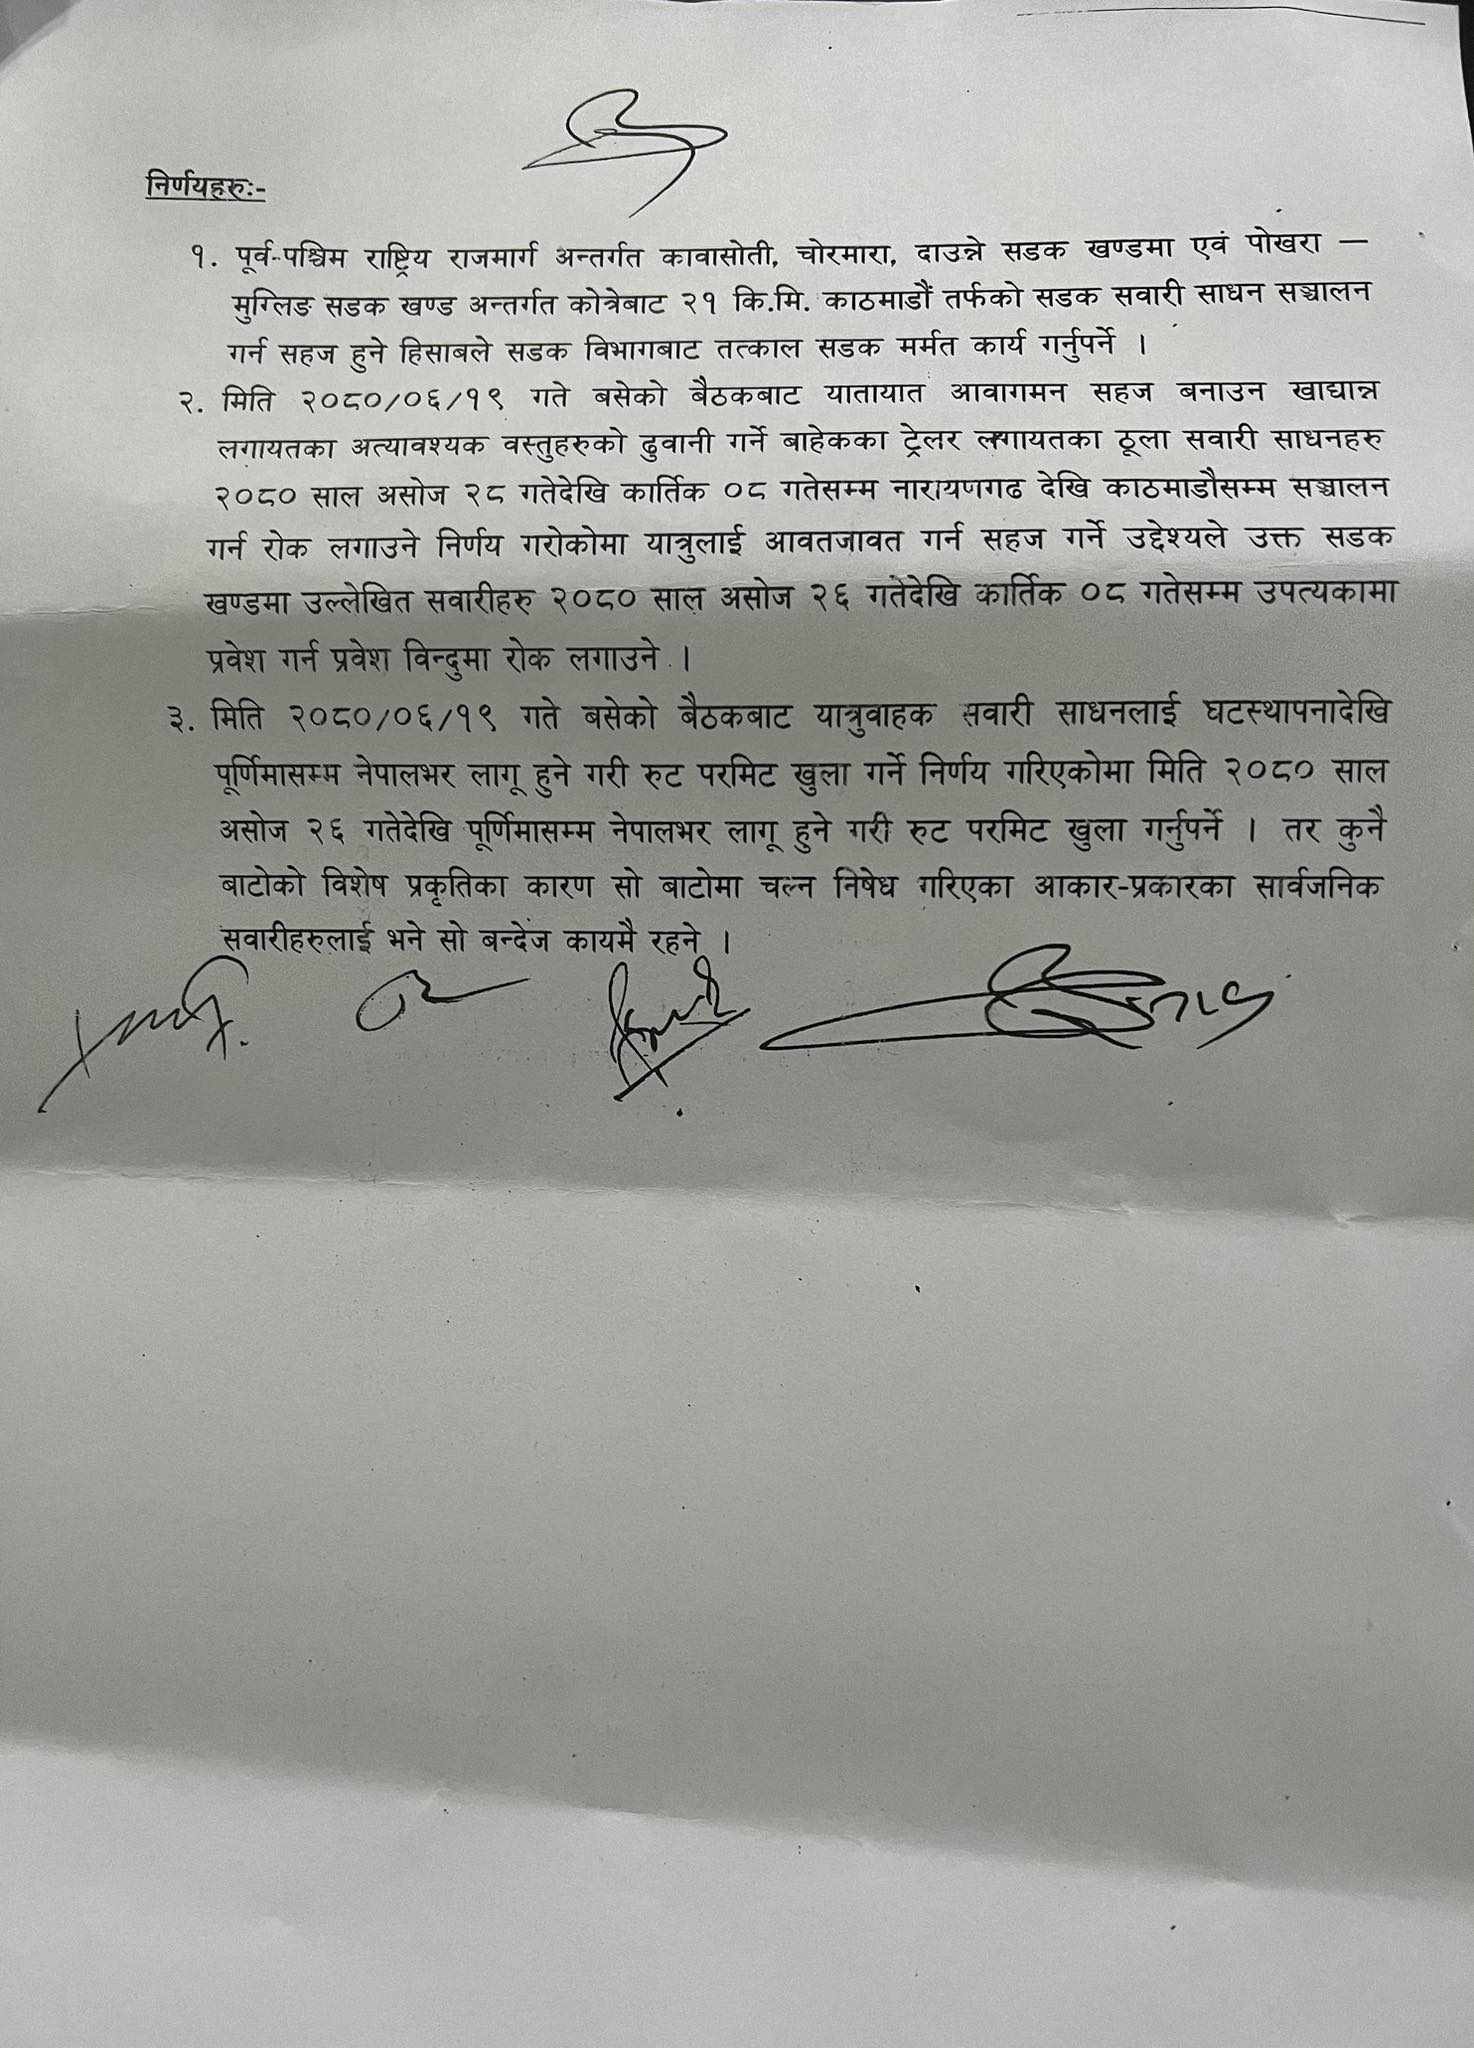 निर्णयहरुः-
१. पूर्व-पश्चिम राष्ट्रिय राजमार्ग अन्तर्गत कावासोती, चोरमारा, दाउन्ने सडक खण्डमा एवं पोखरा —
मुग्लिङ सडक खण्ड अन्तर्गत कोत्रेबाट २१ कि.मि. काठमाडौं तर्फको सडक सवारी साधन सञ्चालन
गर्न सहज हुने हिसाबले सडक विभागबाट तत्काल सडक मर्मत कार्य गर्नुपर्ने ।
२. मिति २०८०/०६/१९ गते बसेको बैठकबाट यातायात आवागमन सहज बनाउन खाद्यान्न
लगायतका अत्यावश्यक वस्तुहरुको ढुवानी गर्ने बाहेकका ट्रेलर लगायतका ठूला सवारी साधनहरु
२०८० साल असोज २८ गतेदेखि कार्तिक ०८ गतेसम्म नारायणगढ देखि काठमाडौसम्म सञ्चालन
गर्न रोक लगाउने निर्णय गरोकोमा यात्रुलाई आवतजावत गर्न सहज गर्ने उद्देश्यले उक्त सडक
खण्डमा उल्लेखित सवारीहरु २०८० साल असोज २६ गतेदेखि कार्तिक ०८ गतेसम्म उपत्यकामा
प्रवेश गर्न प्रवेश विन्दुमा रोक लगाउने ।
३. मिति २०८०/०६/१९ गते बसेको बैठकबाट यात्रुवाहक सवारी साधनलाई घटस्थापनादेखि
पूर्णिमासम्म नेपालभर लागू हुने गरी रुट परमिट खुला गर्ने निर्णय गरिएकोमा मिति २०८० साल
असोज २६ गतेदेखि पूर्णिमासम्म नेपालभर लागू हुने गरी रुट परमिट खुला गर्नुपर्ने । तर कुनै
बाटोको विशेष प्रकृतिका कारण सो बाटोमा चल्न निषेध गरिएका आकार-प्रकारका सार्वजनिक
सवारीहरुलाई भने सो बन्देज कायमै रहने ।